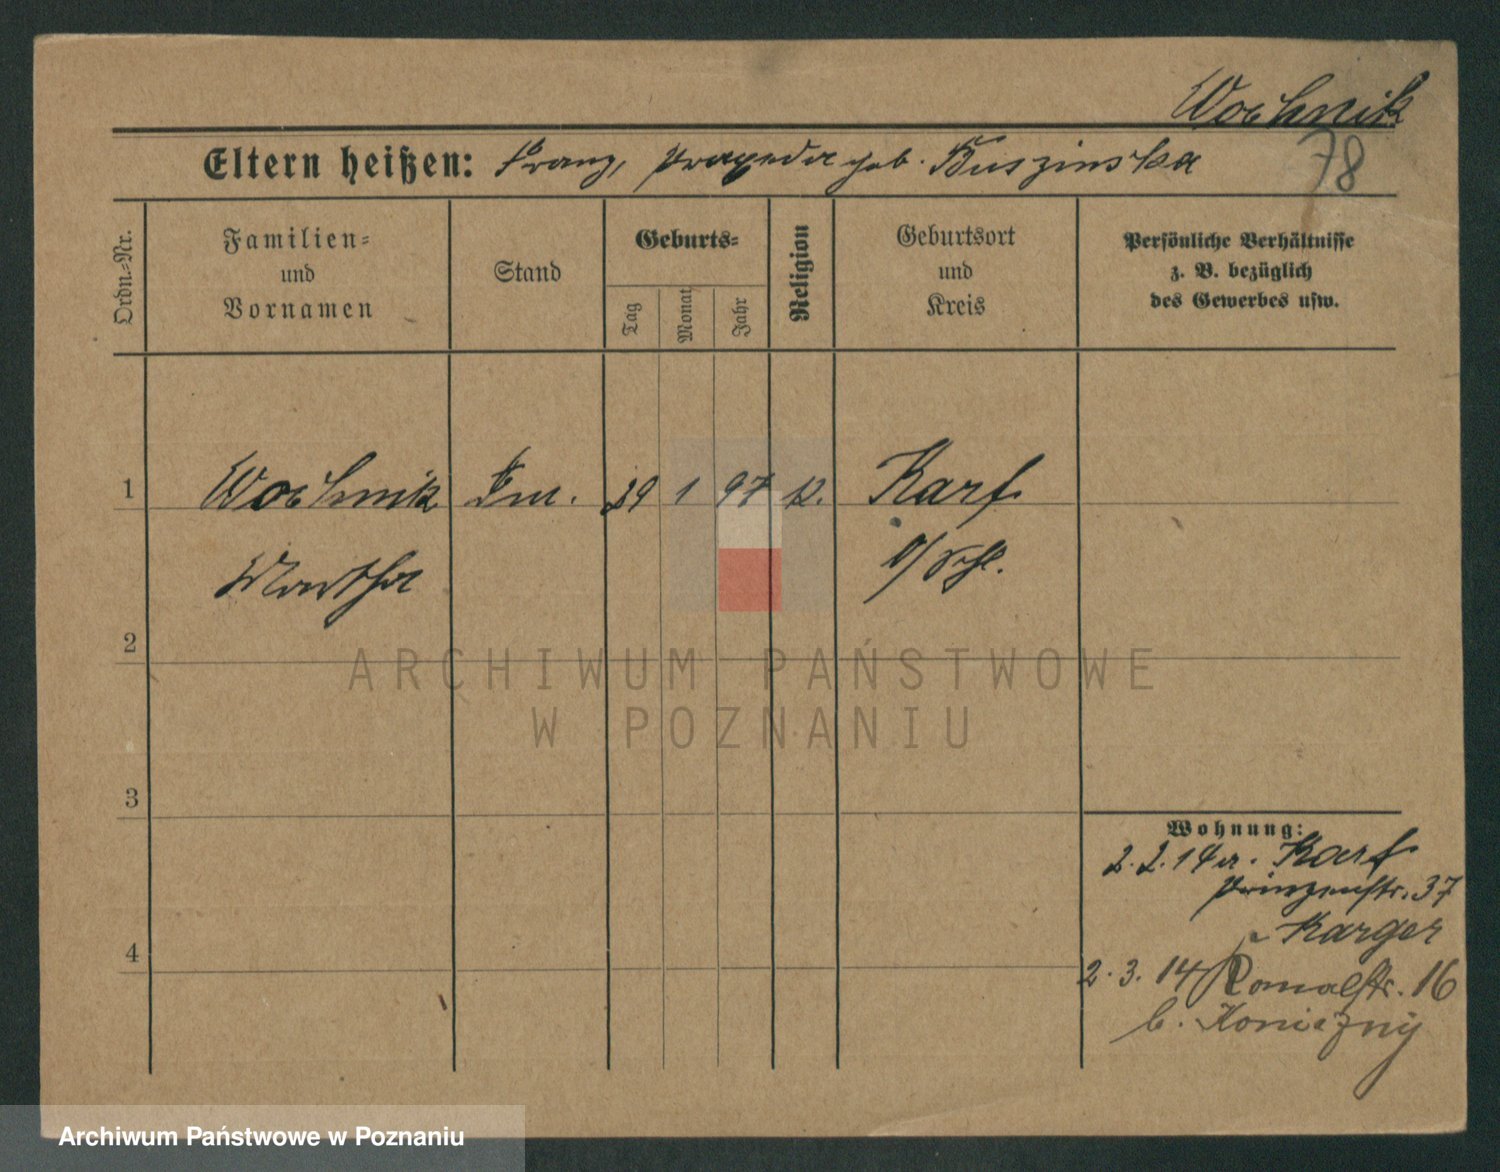 Wochnik
Eltern heißen: Franz, Praxeda geb. Kuszinska
78
Ordn.-Nr.
Familien-
und
Vornamen
Stand
Geburts-
Tag
Monat
Jahr
Religion
Geburtsort
und
Kreis
Persönliche Verhältnisse
z. B. bezüglich
des Gewerbes usw.
1 Wochnik 29 1 97 k. Karf
Martha O/Schl.
2
ARCHIWUM PAŃSTWOWE
W POZNANIU
3
Wohnung:
2.2.14 Karf
Prinzenstr. 37
Karger
4
2.3.14 str. 16
b. Koniezny
Archiwum Państwowe w Poznaniu